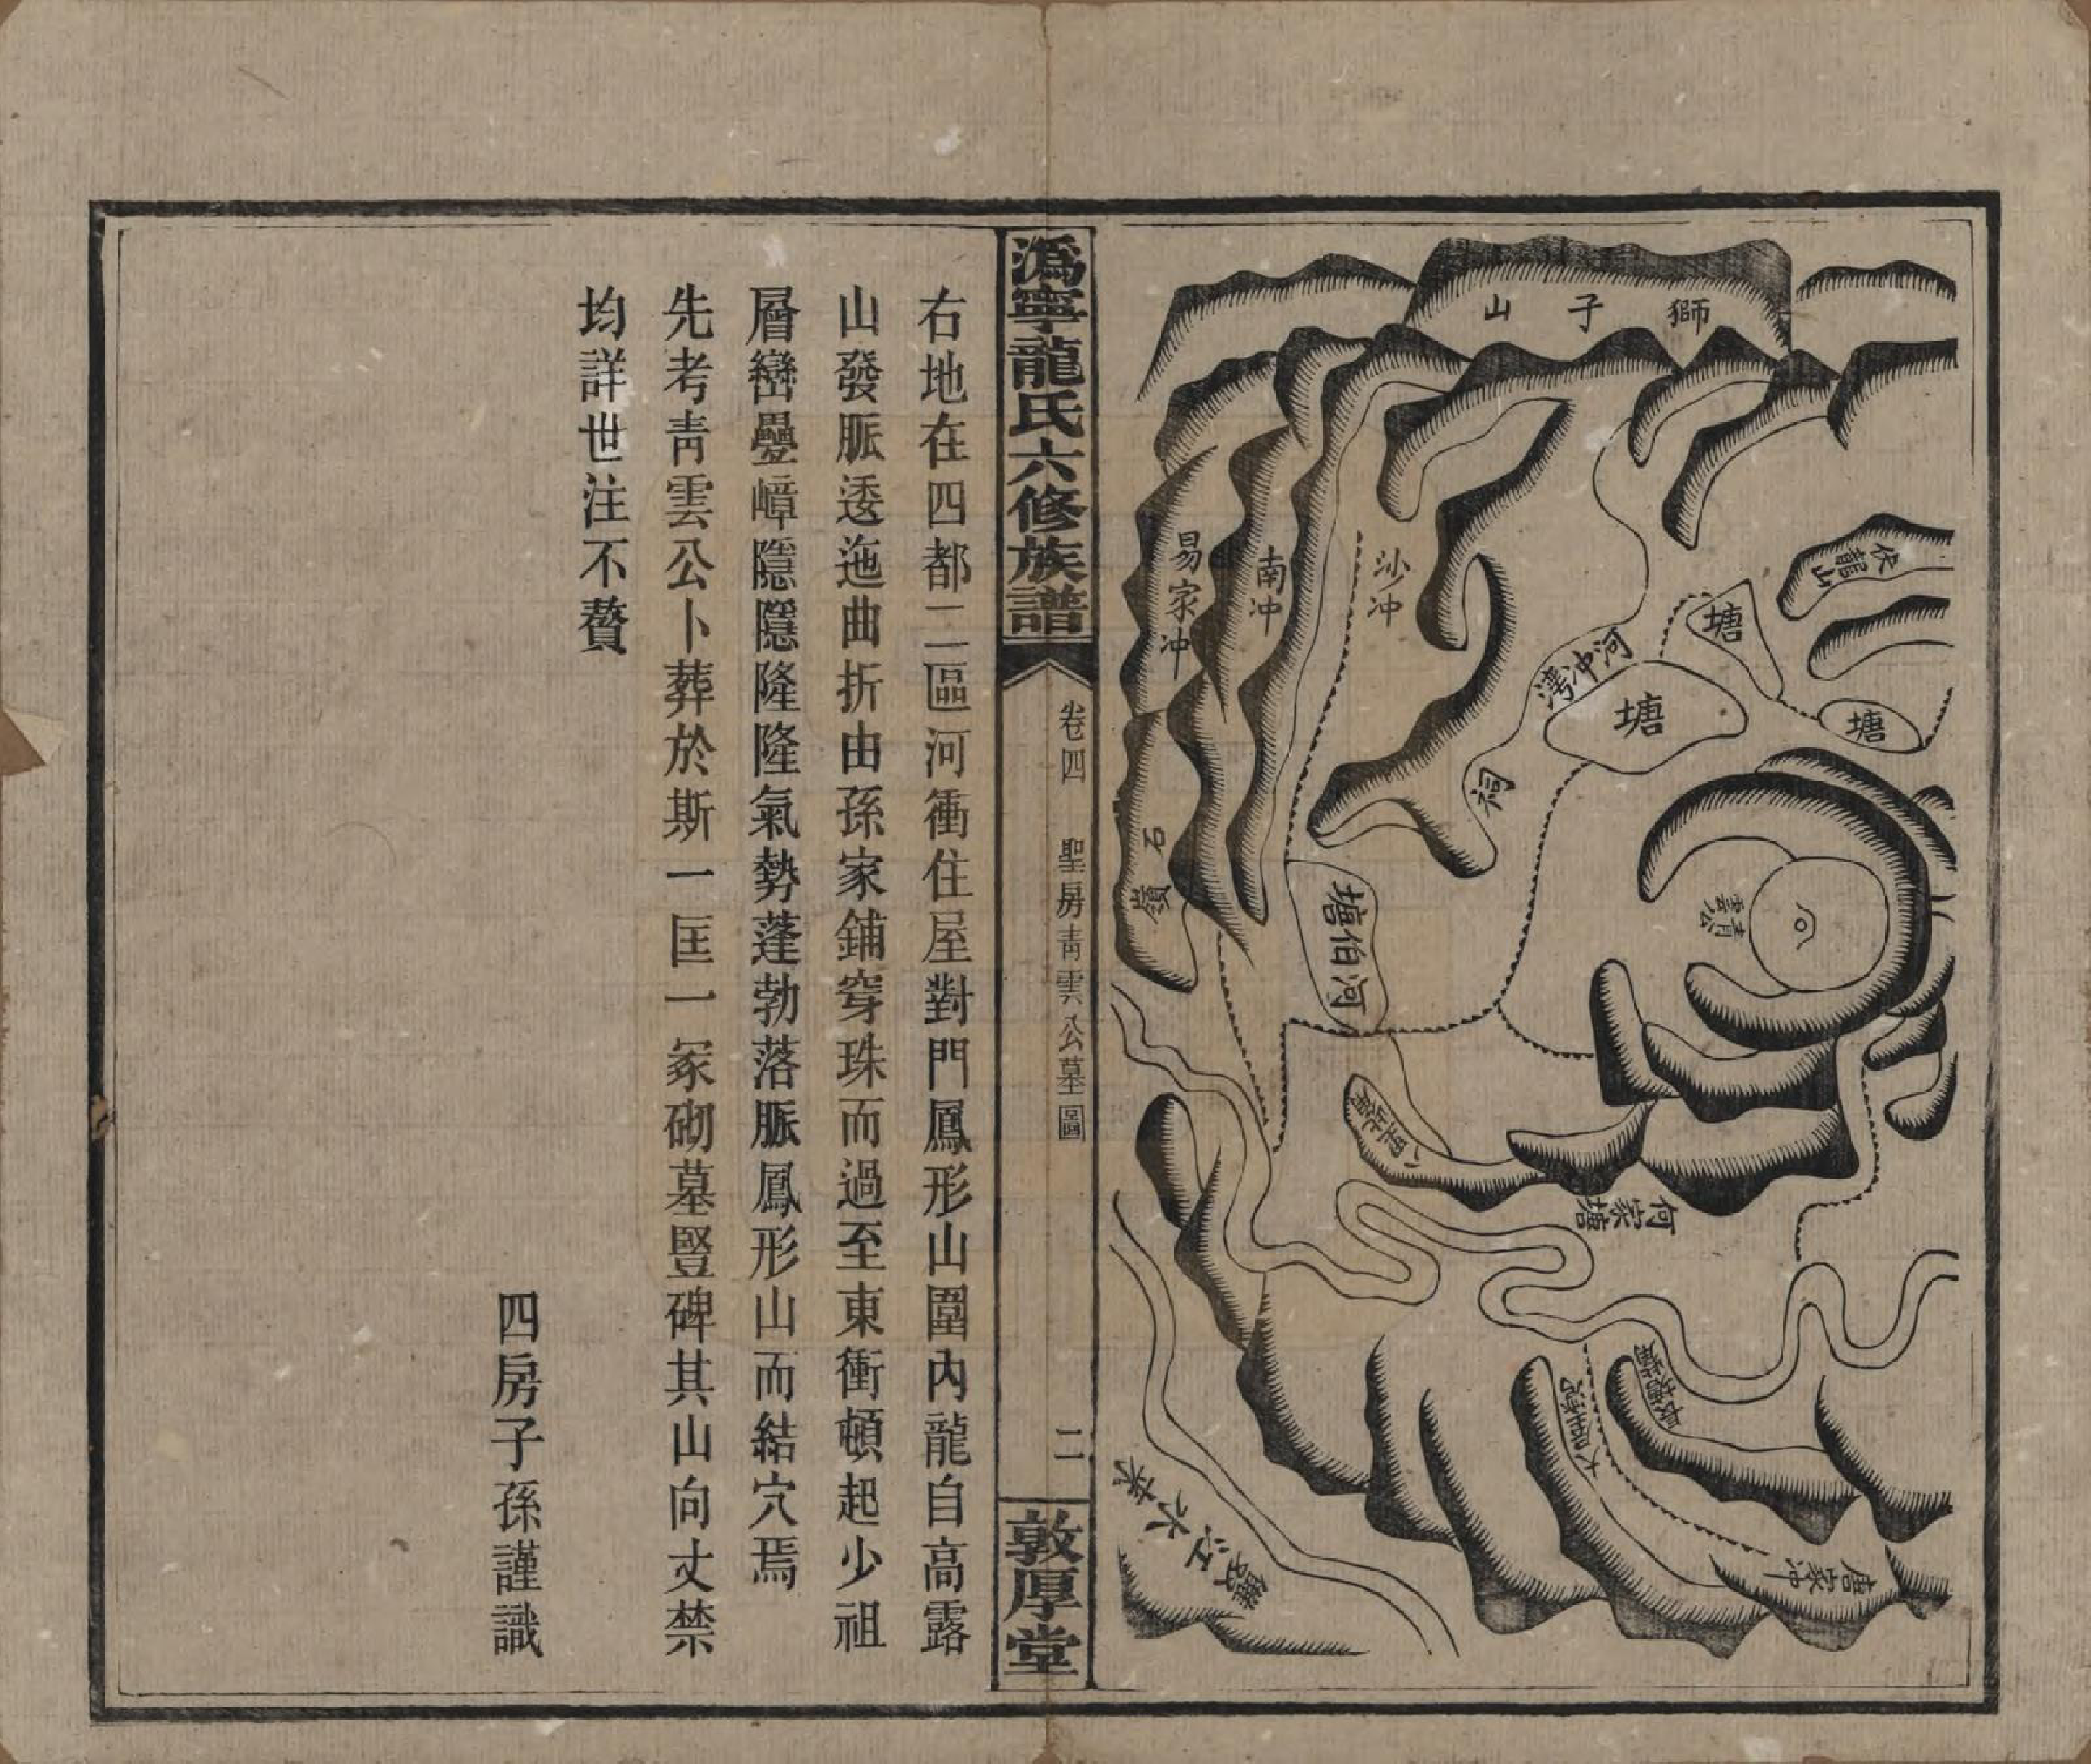 獅子山
伏龍山
塘
塘
塘
河冲灣
祠
沙冲
南冲
易家冲
石嶺
河伯塘
青雲公
何家塘
大屋灣
長塘灣
唐家冲
江水來
溈寧龍氏六修族譜
卷四
聖房青雲公墓圖
二
敦厚堂
右地在四都二區河衝住屋對門鳳形山圍內龍自高露
山發脈逶迤曲折由孫家鋪穿珠而過至東衝頓起少祖
層巒疊嶂隱隱隆隆氣勢蓬勃落脈鳳形山而結穴焉
先考青雲公卜葬於斯一匡一冢砌墓豎碑其山向丈禁
均詳世注不贅
四房子孫謹識